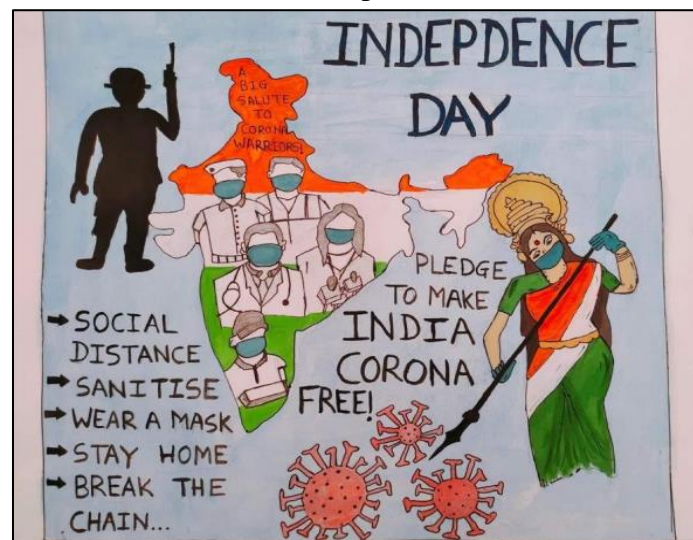 INDEPDENCE
DAY
A
BIG
SALUTE
TO
CORONA
WARRIORS!
PLEDGE
TO MAKE
INDIA
CORONA
FREE!
→ SOCIAL
DISTANCE
→ SANITISE
→ WEAR A MASK
→ STAY HOME
→ BREAK THE
CHAIN...